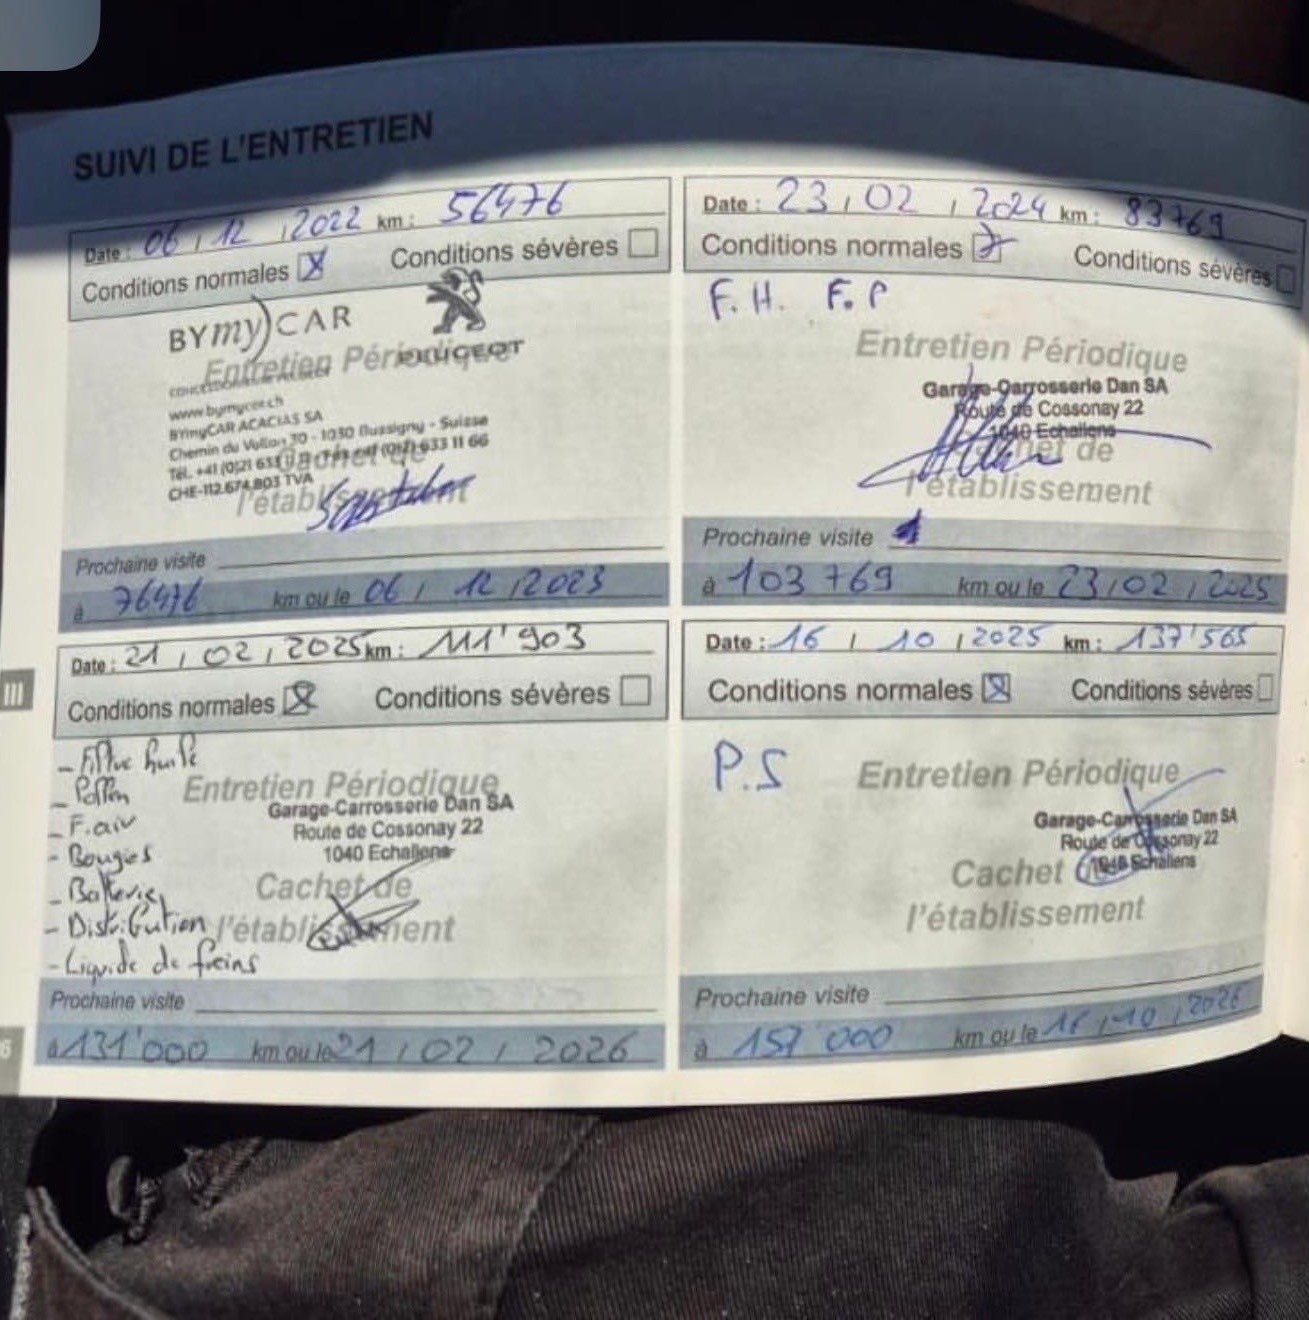 SUIVI DE L'ENTRETIEN
Date : 06 / 12 / 2022 km : 56476
Conditions normales ☒ Conditions sévères ☐
BYmy)CAR
PEUGEOT
Entretien Périodique
www.bymycar.ch
BYmyCAR ACACIAS SA
Chemin du Vallon 30 - 1030 Bussigny - Suisse
CHE-112.674.803 TVA
Cachet de
l'établissement
Prochaine visite
à 76476 km ou le 06 / 12 / 2023
Date : 23 / 02 / 2024 km : 83769
Conditions normales ☒ Conditions sévères ☐
F.H. F.P
Entretien Périodique
Garage-Carrosserie Dan SA
Route de Cossonay 22
1040 Echallens
Cachet de
l'établissement
Prochaine visite
à 103 769 km ou le 23 / 02 / 2025
Date : 21 / 02 / 2025 km : 111'903
Conditions normales ☒ Conditions sévères ☐
- Filtre huile
- Pollen
- F.air
- Bougies
- Batterie
- Distribution
- Liquide de freins
Entretien Périodique
Garage-Carrosserie Dan SA
Route de Cossonay 22
1040 Echallens
Cachet de
l'établissement
Prochaine visite
à 131'000 km ou le 21 / 02 / 2026
Date : 16 / 10 / 2025 km : 137'565
Conditions normales ☒ Conditions sévères ☐
P.S
Entretien Périodique
Garage-Carrosserie Dan SA
Route de Cossonay 22
1040 Echallens
Cachet
l'établissement
Prochaine visite
à 157'000 km ou le 16 / 10 / 2026
III